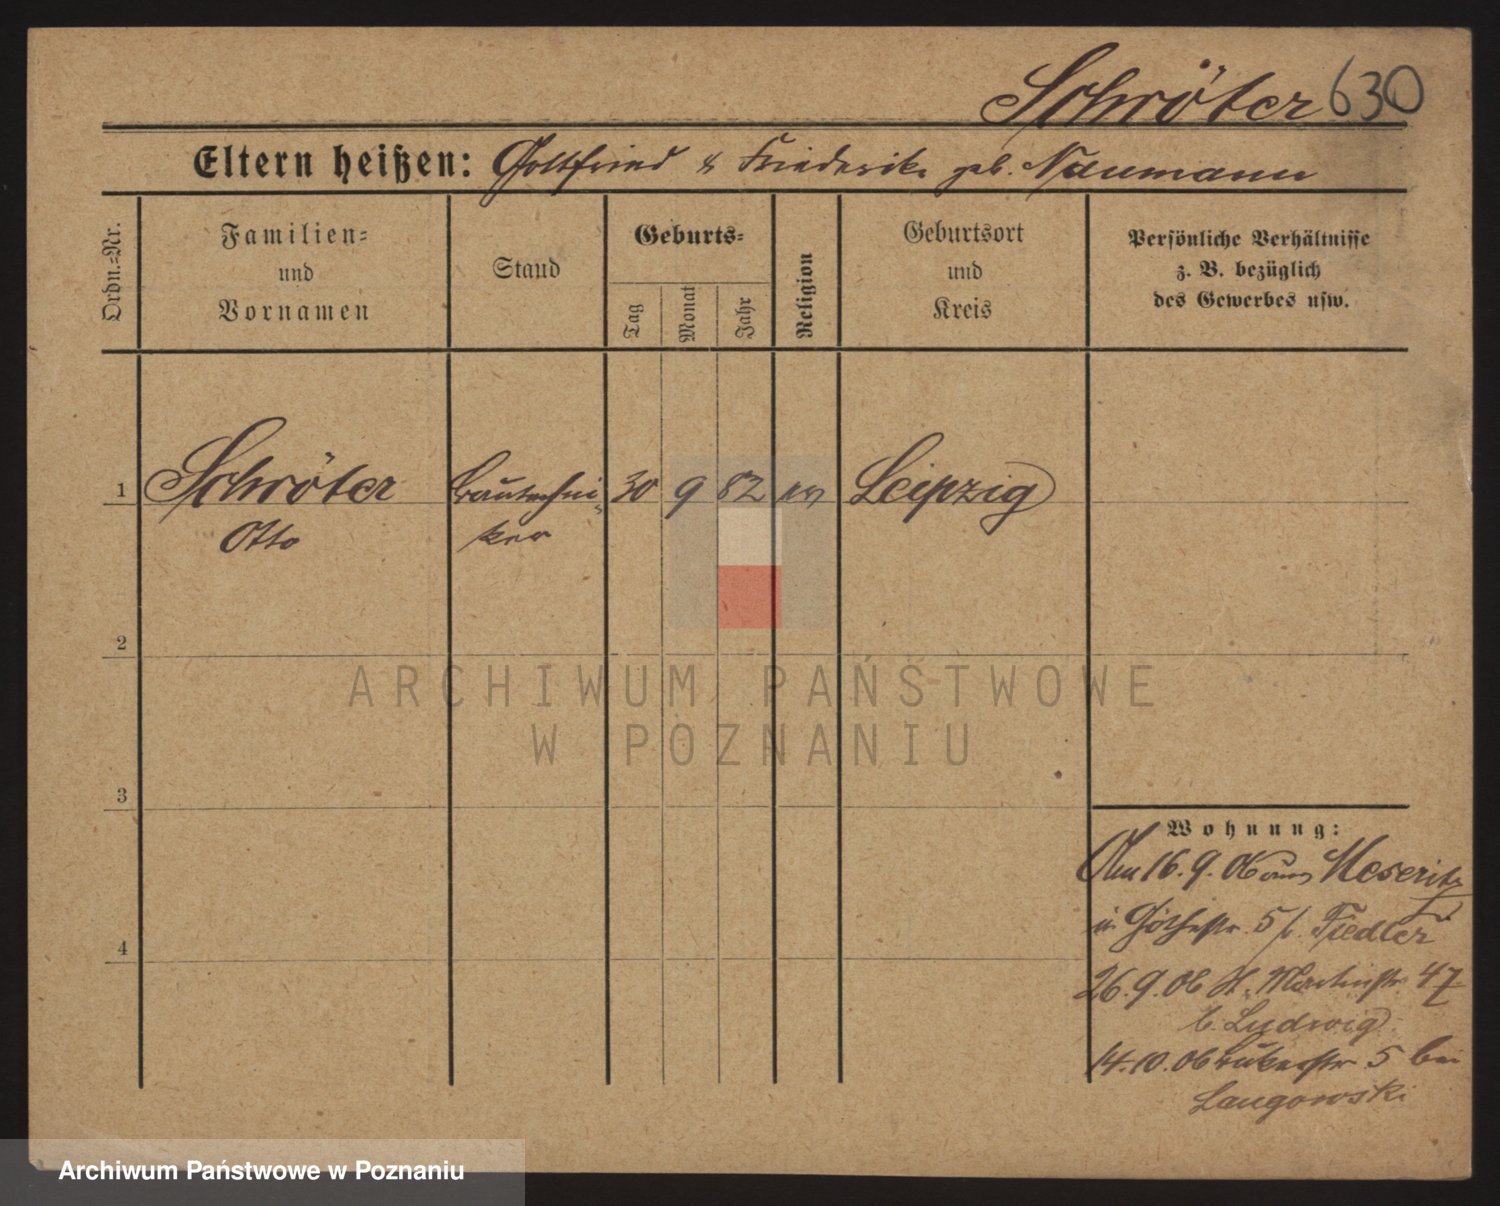 Schröter 630
Eltern heißen: Gottfried & Friederike geb. Naumann
Ordn.=Nr.
Familien=
und
Vornamen
Stand
Geburts=
Tag
Monat
Jahr
Religion
Geburtsort
und
Kreis
Persönliche Verhältnisse
z. B. bezüglich
des Gewerbes usw.
1 Schröter Bautechni= 30 9 82 ev Leipzig
Otto ker
2
3
4
Wohnung:
Am 16. 9. 06 aus Meseritz
in Göthestr. 5 b. Fiedler
26. 9. 06 St. Martinstr 47
b. Ludwig
14. 10. 06 5 bei
Langowski
ARCHIWUM PAŃSTWOWE
W POZNANIU
Archiwum Państwowe w Poznaniu